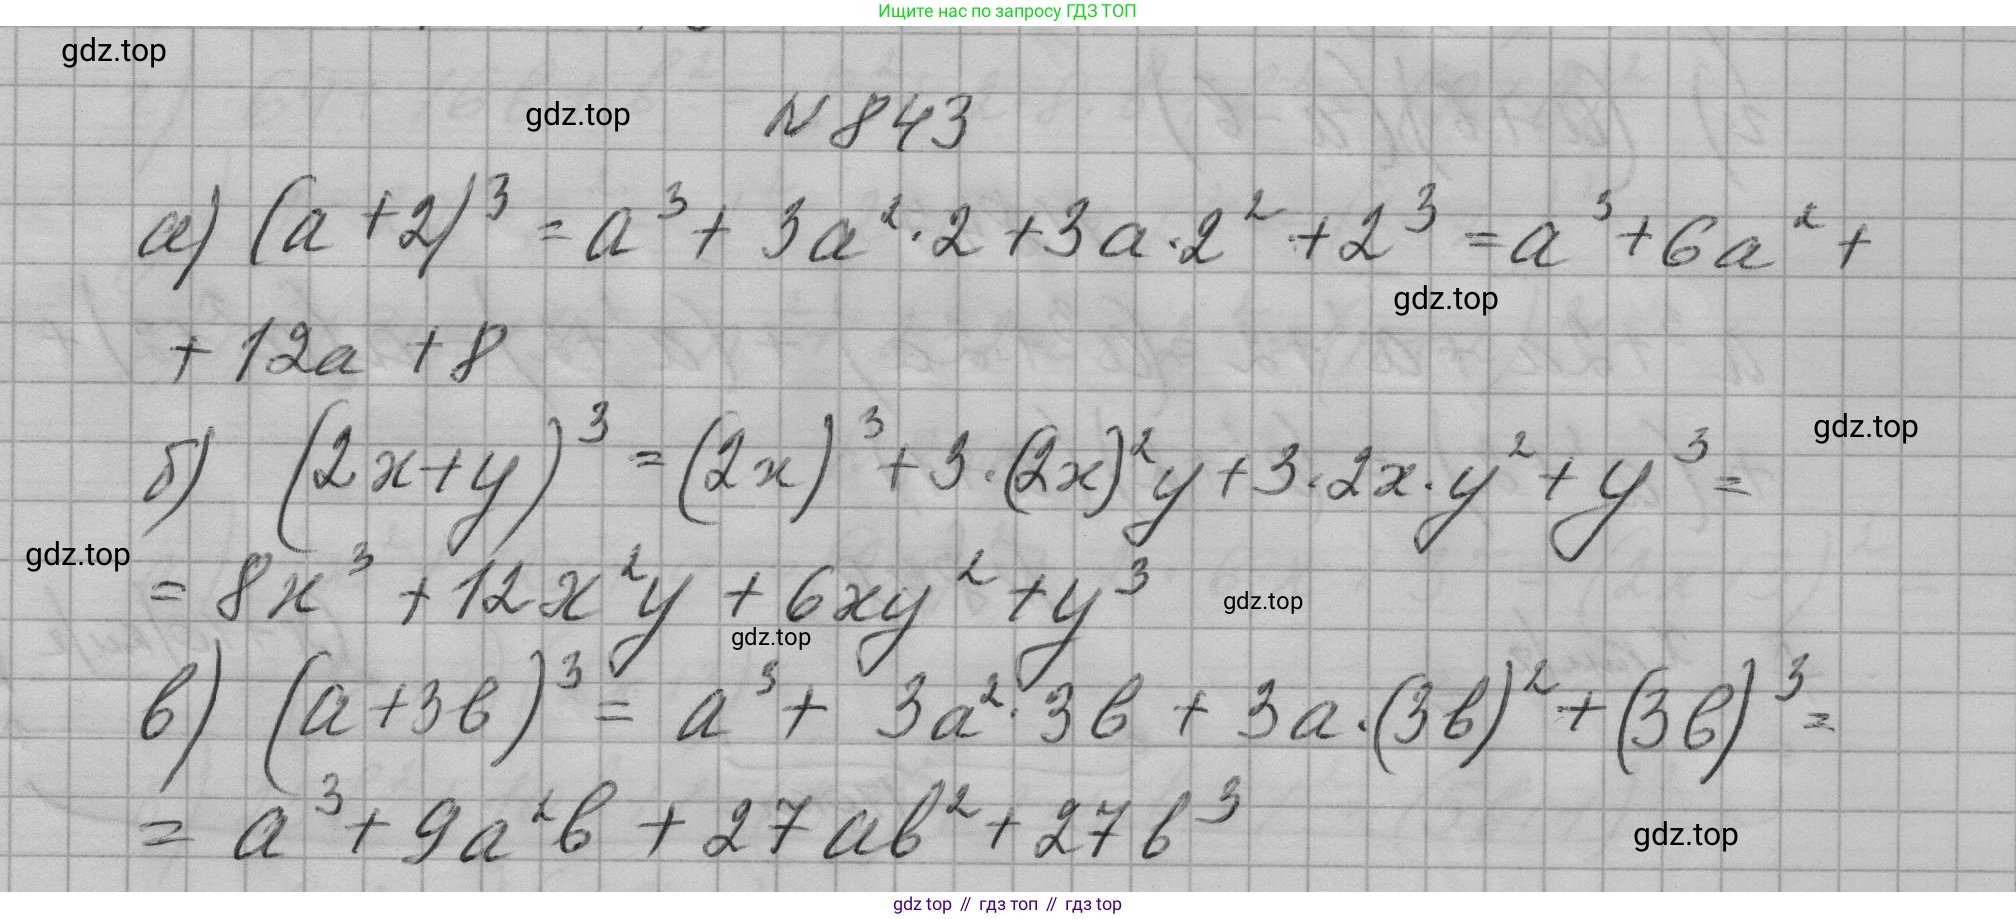 Ищите нас по запросу ГДЗ ТОП
gdz.top
gdz.top
N 843
а) (a+2)³ = a³ + 3a²·2 + 3a·2² + 2³ = a³ + 6a² +
gdz.top
+ 12a + 8
gdz.top
б) (2x+y)³ = (2x)³ + 3·(2x)²y + 3·2x·y² + y³ =
gdz.top
= 8x³ + 12x²y + 6xy² + y³
gdz.top
gdz.top
в) (a+3b)³ = a³ + 3a²·3b + 3a·(3b)² + (3b)³ =
= a³ + 9a²b + 27ab² + 27b³
gdz.top
gdz top // гдз топ // гдз top